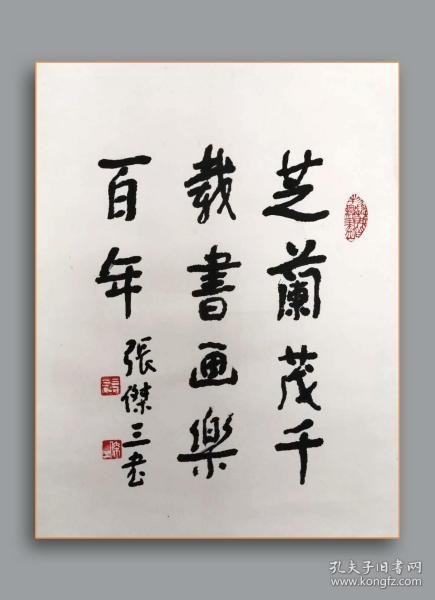 芝蘭茂千
載書画樂
百年
張傑三书
孔夫子旧书网
www.kongfz.com